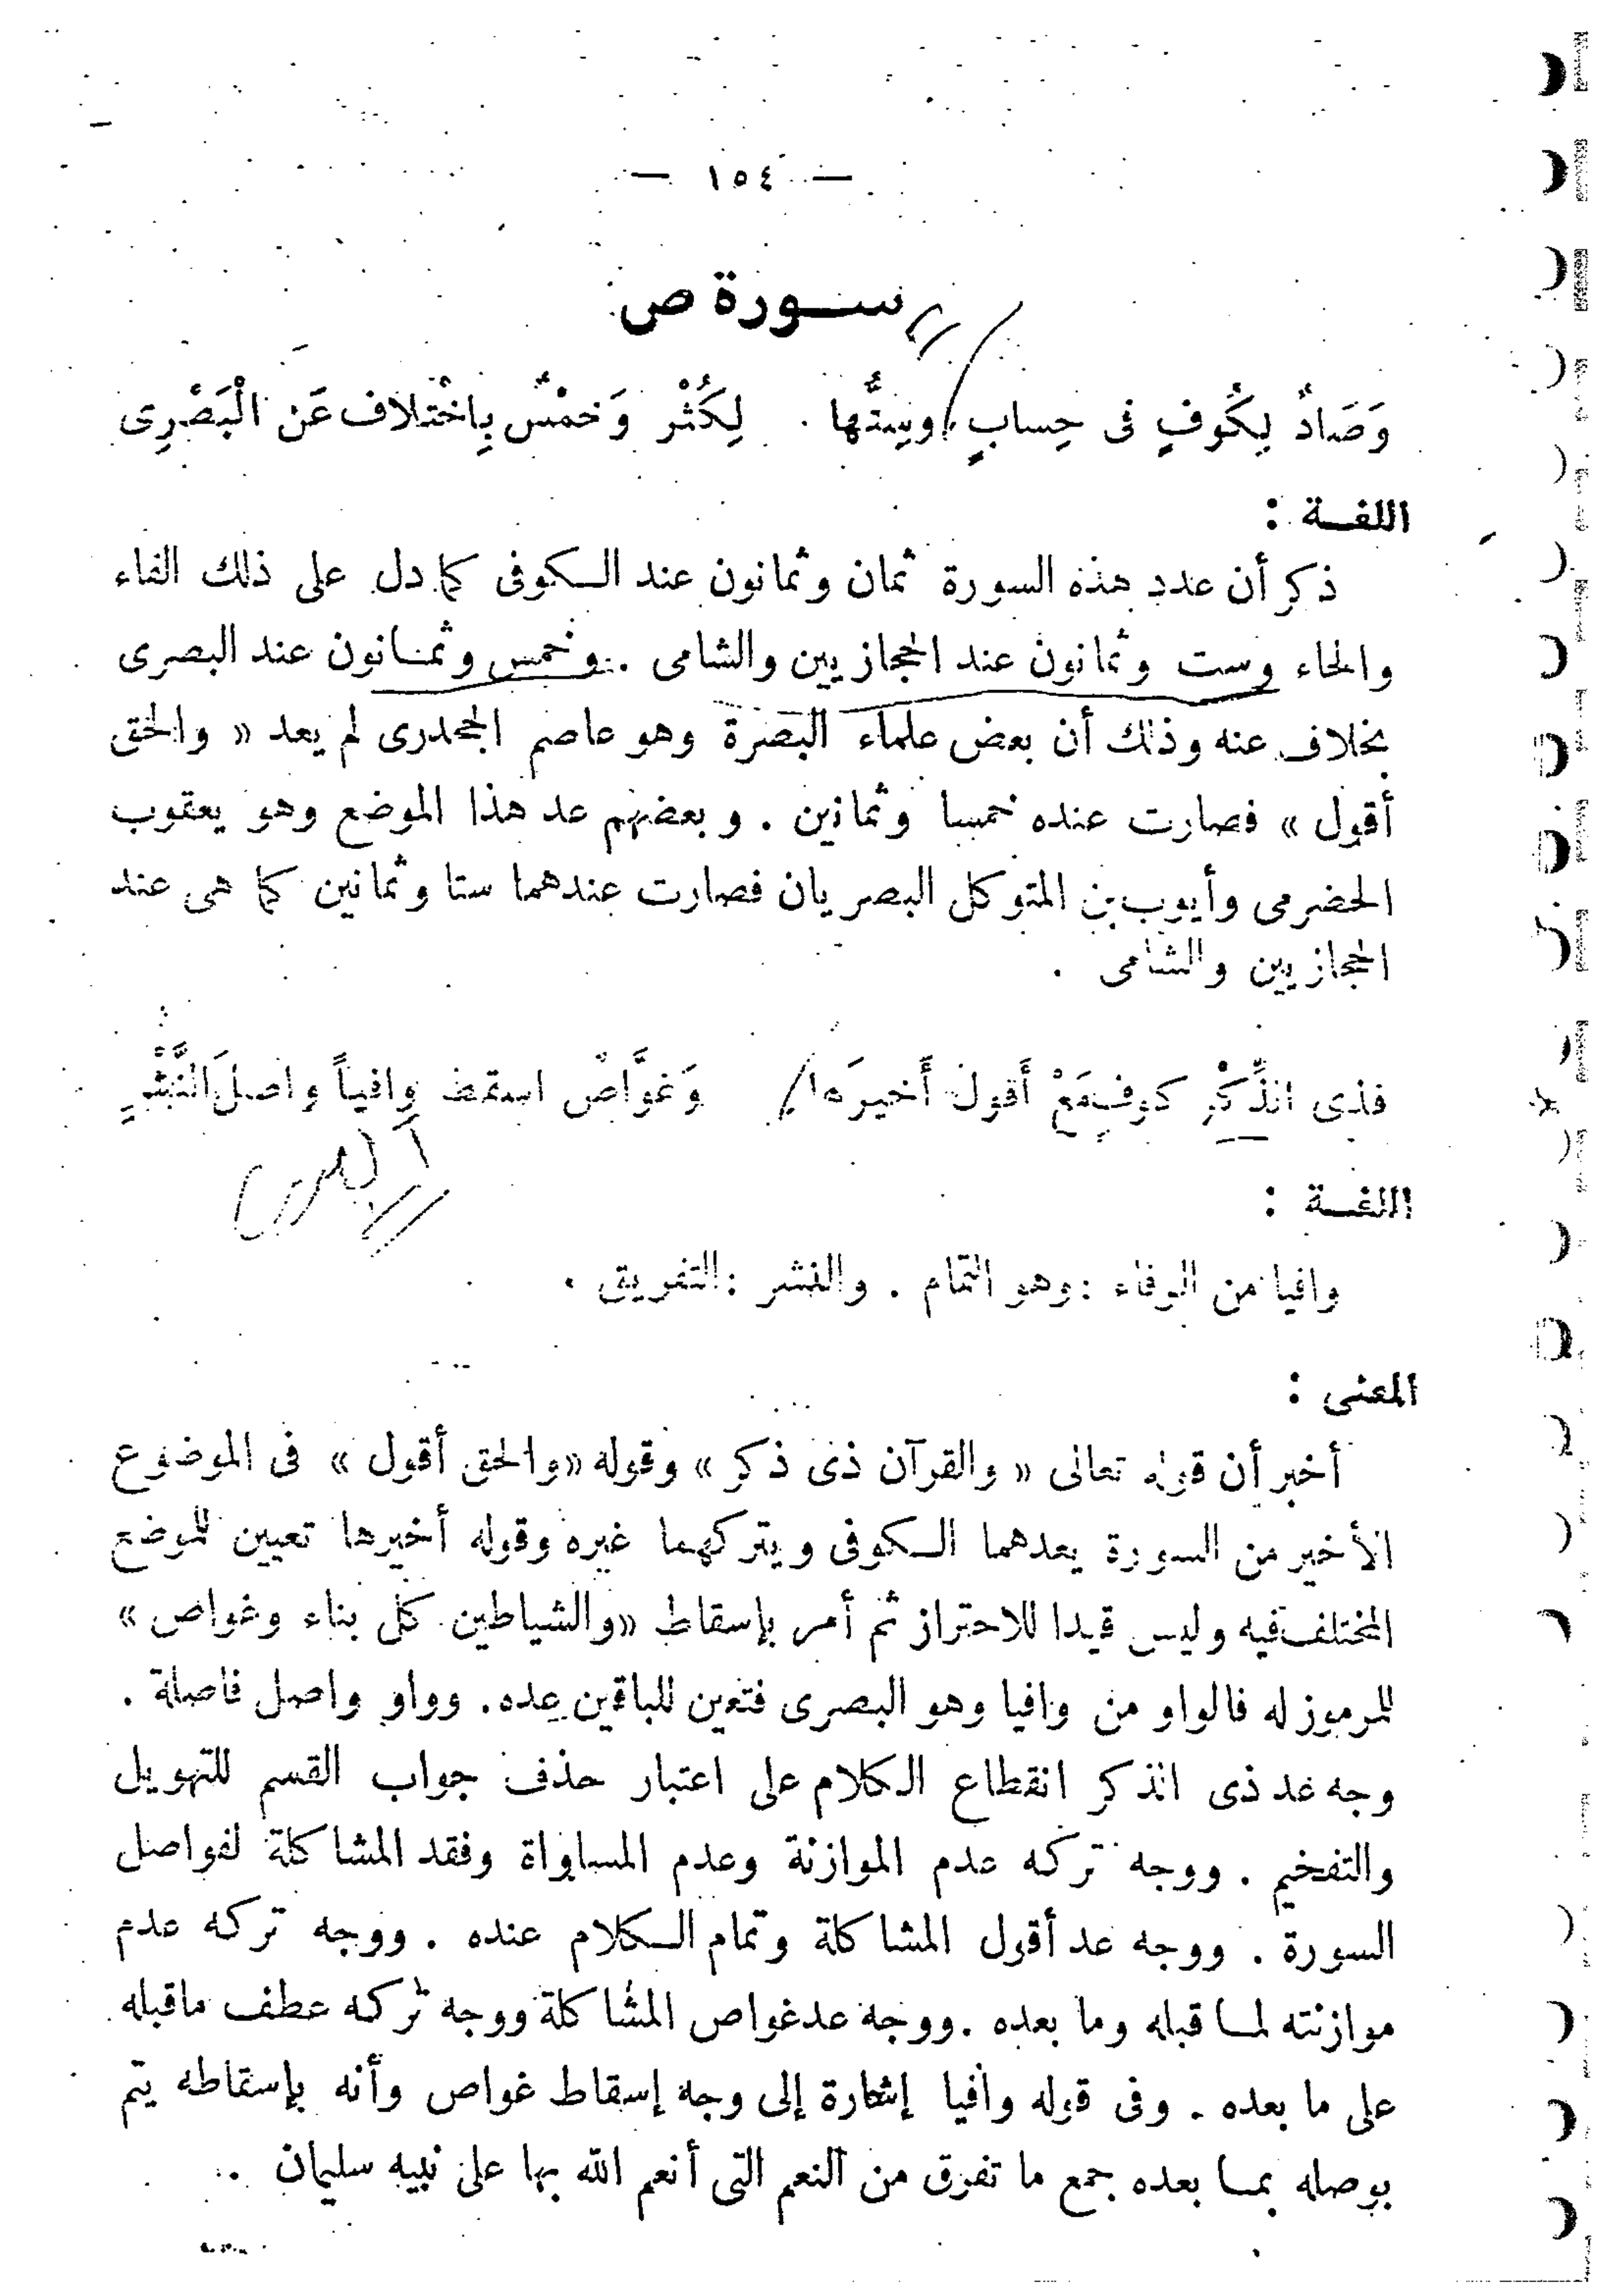 — ١٥٤ —
سورة ص
وَصَادٌ لِكُوفٍ فى حِسابٍ وسِتُّها . لِكَثْرٍ وَخمْسٌ بِاخْتلاف عَن الْبَصْرِى
اللغة :
ذكر أن عدد هذه السورة ثمان وثمانون عند الكوفى كما دل على ذلك الفاء
والحاء وست وثمانون عند الحجازيين والشامى . وخمس وثمانون عند البصرى
بخلاف عنه وذلك أن بعض علماء البصرة وهو عاصم الجحدرى لم يعد « والحق
أقول » فصارت عنده خمسا وثمانين . وبعضهم عد هذا الموضع وهو يعقوب
الحضرمى وأيوب بن المتوكل البصريان فصارت عندهما ستا وثمانين كما هى عند
الحجازيين والشامى .
فذى الذِّكْرِ كوفٍ مَعْ أَقولُ أَخيرَها وَغوَّاصٌ اسقط وافياً واصلَ النَّشْرِ
اللغة :
وافيا من الوفاء : وهو التمام . والنشر : التفريق .
المعنى :
أخبر أن قوله تعالى « والقرآن ذى ذكر » وقوله «والحق أقول » فى الموضوع
الأخير من السورة يعدهما الكوفى ويتركهما غيره وقوله أخيرها تعيين للموضع
المختلف فيه وليس قيدا للاحتراز ثم أمر بإسقاط «والشياطين كل بناء وغواص»
للمرموز له فالواو من وافيا وهو البصرى فتعين للباقين عده. وواو واصل فاصلة .
وجه عد ذى الذكر انقطاع الكلام على اعتبار حذف جواب القسم للتهويل
والتفخيم . ووجه تركه عدم الموازنة وعدم المساواة وفقد المشاكلة لفواصل
السورة . ووجه عد أقول المشاكلة وتمام الكلام عنده . ووجه تركه عدم
موازنته لما قبله وما بعده . ووجه عد غواص المشاكلة ووجه تركه عطف ماقبله
على ما بعده . وفى قوله وافيا إشارة إلى وجه إسقاط غواص وأنه بإسقاطه يتم
بوصله بما بعده جمع ما تفرق من النعم التى أنعم الله بها على نبيه سليمان .